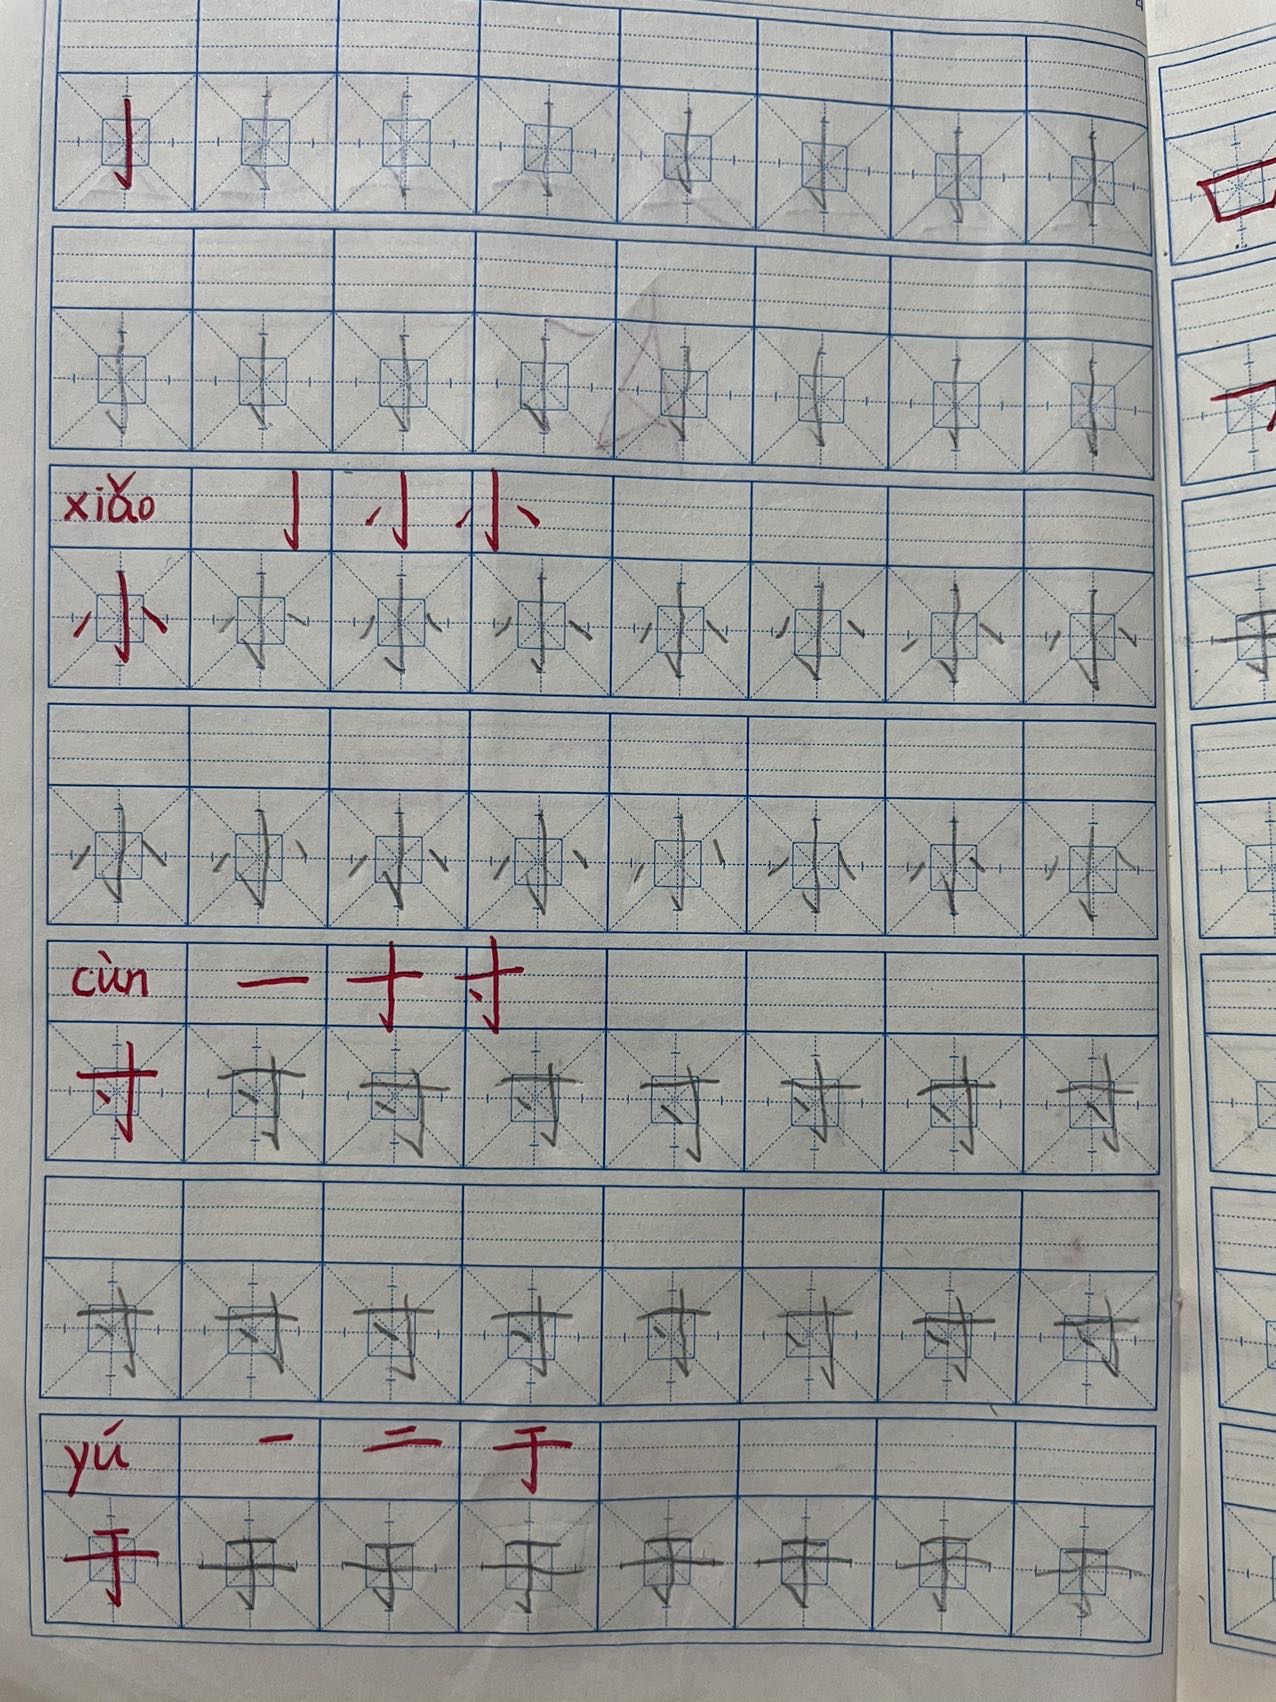 亅 亅 亅 亅 亅 亅 亅 亅
亅 亅 亅 亅 亅 亅 亅 亅
xiǎo 亅 小
小 小 小 小 小 小 小 小
小 小 小 小 小 小 小 小
cùn 一 十 寸
寸 寸 寸 寸 寸 寸 寸 寸
寸 寸 寸 寸 寸 寸 寸 寸
yú 一 二 于
于 于 于 于 于 于 于 于